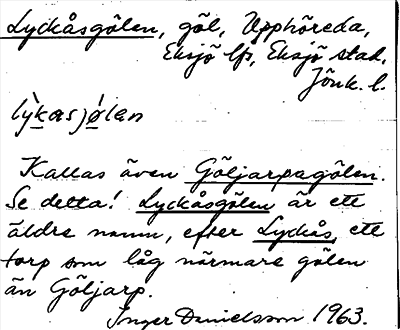 Lyckåsgölen, göl, Upphöreda,
Eksjö lfs, Eksjö stad,
Jönk. l.
lỳkasjǿlan
Kallas även Göljarpagölen.
Se detta! Lyckåsgölen är ett
äldre namn, efter Lyckås, ett
torp som låg närmare gölen
än Göljarp.
Inger Danielsson 1963.